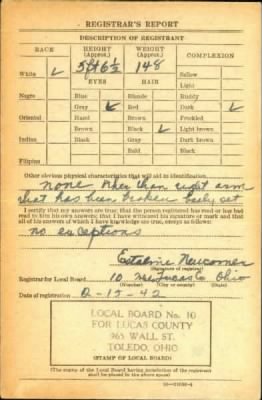 REGISTRAR'S REPORT
DESCRIPTION OF REGISTRANT
RACE HEIGHT (Approx.) WEIGHT (Approx.) COMPLEXION
White 5 ft 6 ½ 148 Sallow
EYES HAIR Light
Negro Blue Blonde Ruddy
Gray Red Dark
Oriental Hazel Brown Freckled
Brown Black Light brown
Indian Black Gray Dark brown
Bald Black
Filipino
Other obvious physical characteristics that will aid in identification
none other than right arm
that has been broken badly set
I certify that my answers are true; that the person registered has read or has had
read to him his own answers; that I have witnessed his signature or mark and that
all of his answers of which I have knowledge are true, except as follows:
no exceptions
Newcomer
(Signature of registrar)
Registrar for Local Board 10 Lucas Ohio
(Number) (City or county) (State)
Date of registration 2-15-42
LOCAL BOARD NO. 10
FOR LUCAS COUNTY
965 WALL ST.
TOLEDO, OHIO
(STAMP OF LOCAL BOARD)
(The stamp of the Local Board having jurisdiction of the registrant
shall be placed in the above space)